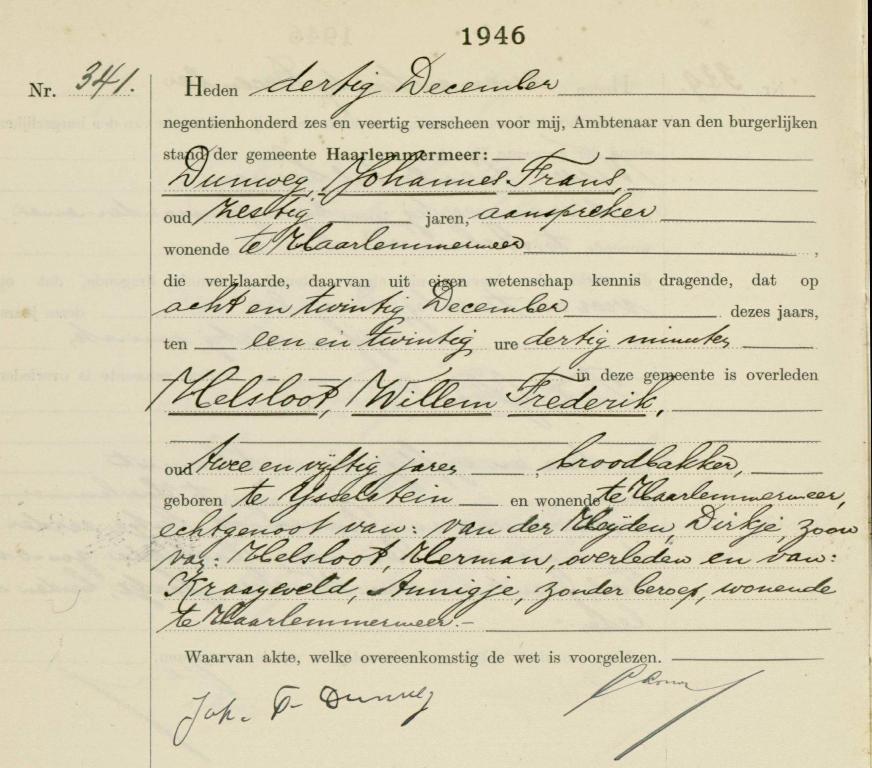 1946
Nr. 341. Heden dertig December
negentienhonderd zes en veertig verscheen voor mij, Ambtenaar van den burgerlijken
stand der gemeente Haarlemmermeer:
Dunweg, Johannes Frans,
oud zestig jaren, aanspreker
wonende te Haarlemmermeer ,
die verklaarde, daarvan uit eigen wetenschap kennis dragende, dat op
acht en twintig December dezes jaars,
ten een en twintig ure dertig minuten
in deze gemeente is overleden
Helsloot, Willem Frederik,
oud twee en vijftig jaren , broodbakker,
geboren te IJsselstein en wonende te Haarlemmermeer,
echtgenoot van: van der Heijden, Dirkje, zoon
van: Helsloot, Herman, overleden en van:
Kraayeveld, Annigje, zonder beroep, wonende
te Haarlemmermeer.-
Waarvan akte, welke overeenkomstig de wet is voorgelezen.
Joh. F. Dunweg